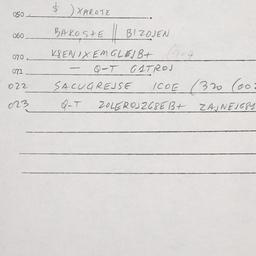 050 $ ) XAROTE
060 BAROSTE || BIZOJEN
070 KSENIXEMGLEJB+
071 — Q-T GITROJ
022 SACUGREJSE ICOE (320 (00
023 Q-T ZOLEROJZGSEB+ ZAJNEJGSB